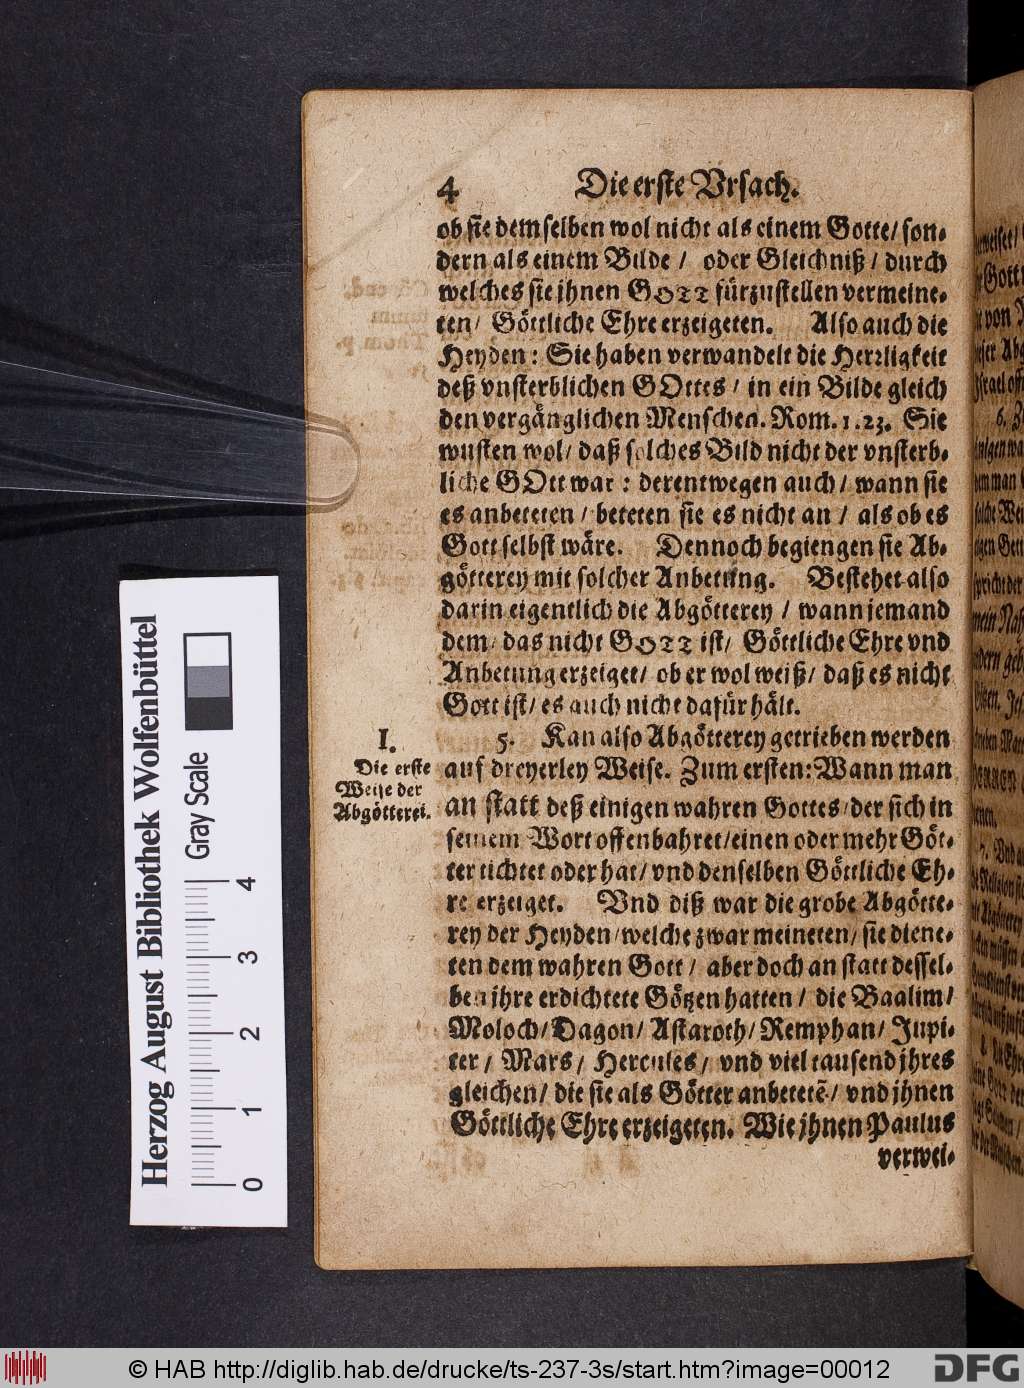 4 Die erste Vrsach.
ob sie demselben wol nicht als einem Gotte/ son-
dern als einem Bilde / oder Gleichniß / durch
welches sie jhnen GOTT fürzustellen vermeine-
ten/ Göttliche Ehre erzeigeten. Also auch die
Heyden: Sie haben verwandelt die Herrligkeit
deß vnsterblichen GOttes / in ein Bilde gleich
den vergänglichen Menschen. Rom. 1. 23. Sie
wusten wol/ daß solches Bild nicht der vnsterb-
liche GOtt war : derentwegen auch / wann sie
es anbeteten / beteten sie es nicht an / als ob es
Gott selbst wäre. Dennoch begiengen sie Ab-
götterey mit solcher Anbetung. Bestehet also
darin eigentlich die Abgötterey / wann jemand
dem/ das nicht GOTT ist/ Göttliche Ehre vnd
Anbetung erzeiget/ ob er wol weiß/ daß es nicht
Gott ist/ es auch nicht dafür hält.
I.
Die erste
Weise der
Abgötterei.
5. Kan also Abgötterey getrieben werden
auf dreyerley Weise. Zum ersten: Wann man
an statt deß einigen wahren Gottes/ der sich in
seinem Wort offenbahret/ einen oder mehr Göt-
ter tichtet oder hat/ vnd denselben Göttliche Eh-
re erzeiget. Vnd diß war die grobe Abgötte-
rey der Heyden/ welche zwar meineten/ sie diene-
ten dem wahren Gott / aber doch an statt dessel-
ben jhre erdichtete Götzen hatten / die Baalim/
Moloch/ Dagon/ Astaroth/ Remphan/ Jupi-
ter / Mars/ Hercules / vnd viel tausend jhres
gleichen/ die sie als Götter anbetetē/ vnd jhnen
Göttliche Ehre erzeigeten. Wie jhnen Paulus
verwei-
Herzog August Bibliothek Wolfenbüttel
Gray Scale
0 1 2 3 4
© HAB http://diglib.hab.de/drucke/ts-237-3s/start.htm?image=00012
DFG